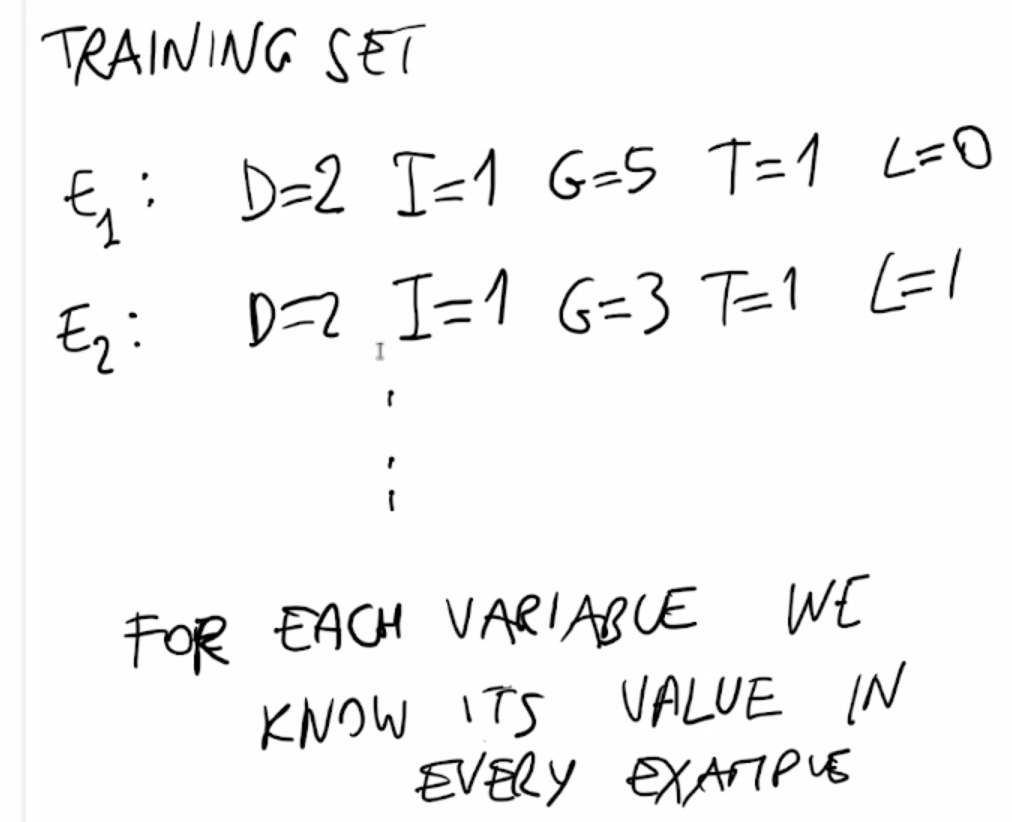 TRAINING SET
E1: D=2 I=1 G=5 T=1 L=0
E2: D=2 I=1 G=3 T=1 L=1
FOR EACH VARIABLE WE
KNOW ITS VALUE IN
EVERY EXAMPLE